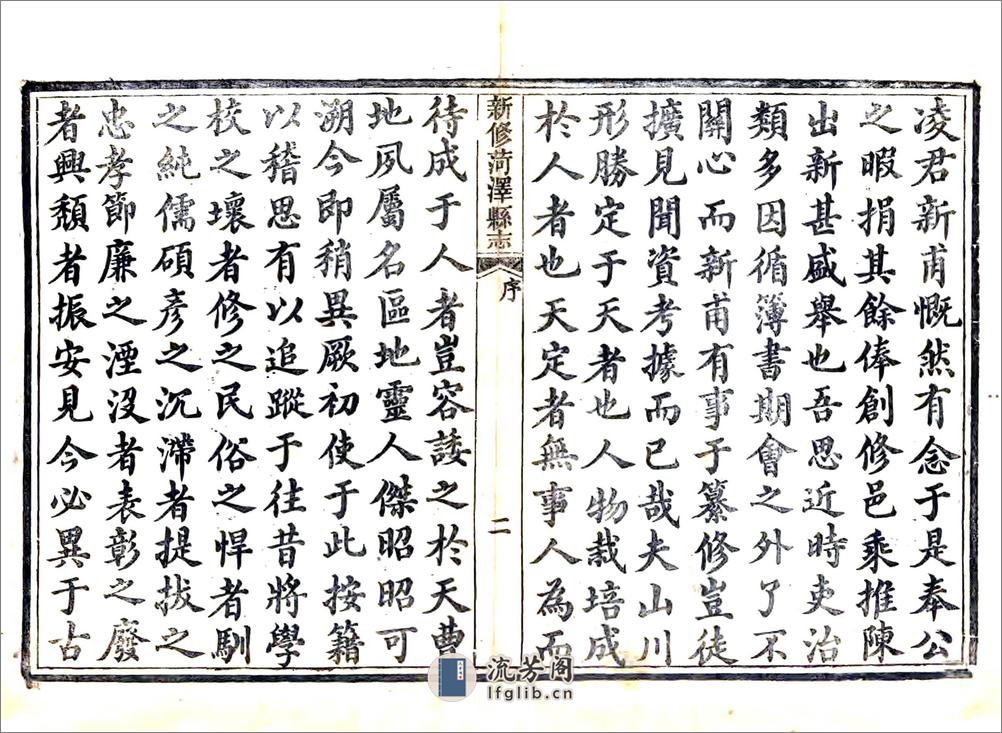 凌君新甫慨然有念于是奉公
之暇捐其餘俸創修邑乘推陳
出新甚盛舉也吾思近時吏治
類多因循簿書期會之外了不
關心而新甫有事于纂修豈徒
擴見聞資考據而已哉夫山川
形勝定于天者也人物栽培成
於人者也天定者無事人為而
新修菏澤縣志
序
二
待成于人者豈容諉之於天曹
地夙屬名區地靈人傑昭昭可
溯今即稍異厥初使于此按籍
以稽思有以追蹤于往昔將學
校之壞者修之民俗之悍者馴
之純儒碩彥之沉滯者提拔之
忠孝節廉之湮沒者表彰之廢
者興頹者振安見今必異于古
流芳阁
lfglib.cn